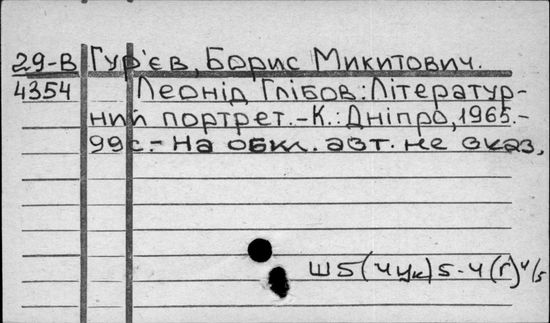 29-В Гур'єв, Борис Микитович.
4354 Леонід Глібов: Літератур-
ний портрет.-К.: Дніпро, 1965.-
99с.- На обкл. авт. не указ.
Ш5(4Ук)5-4(Г)4/5